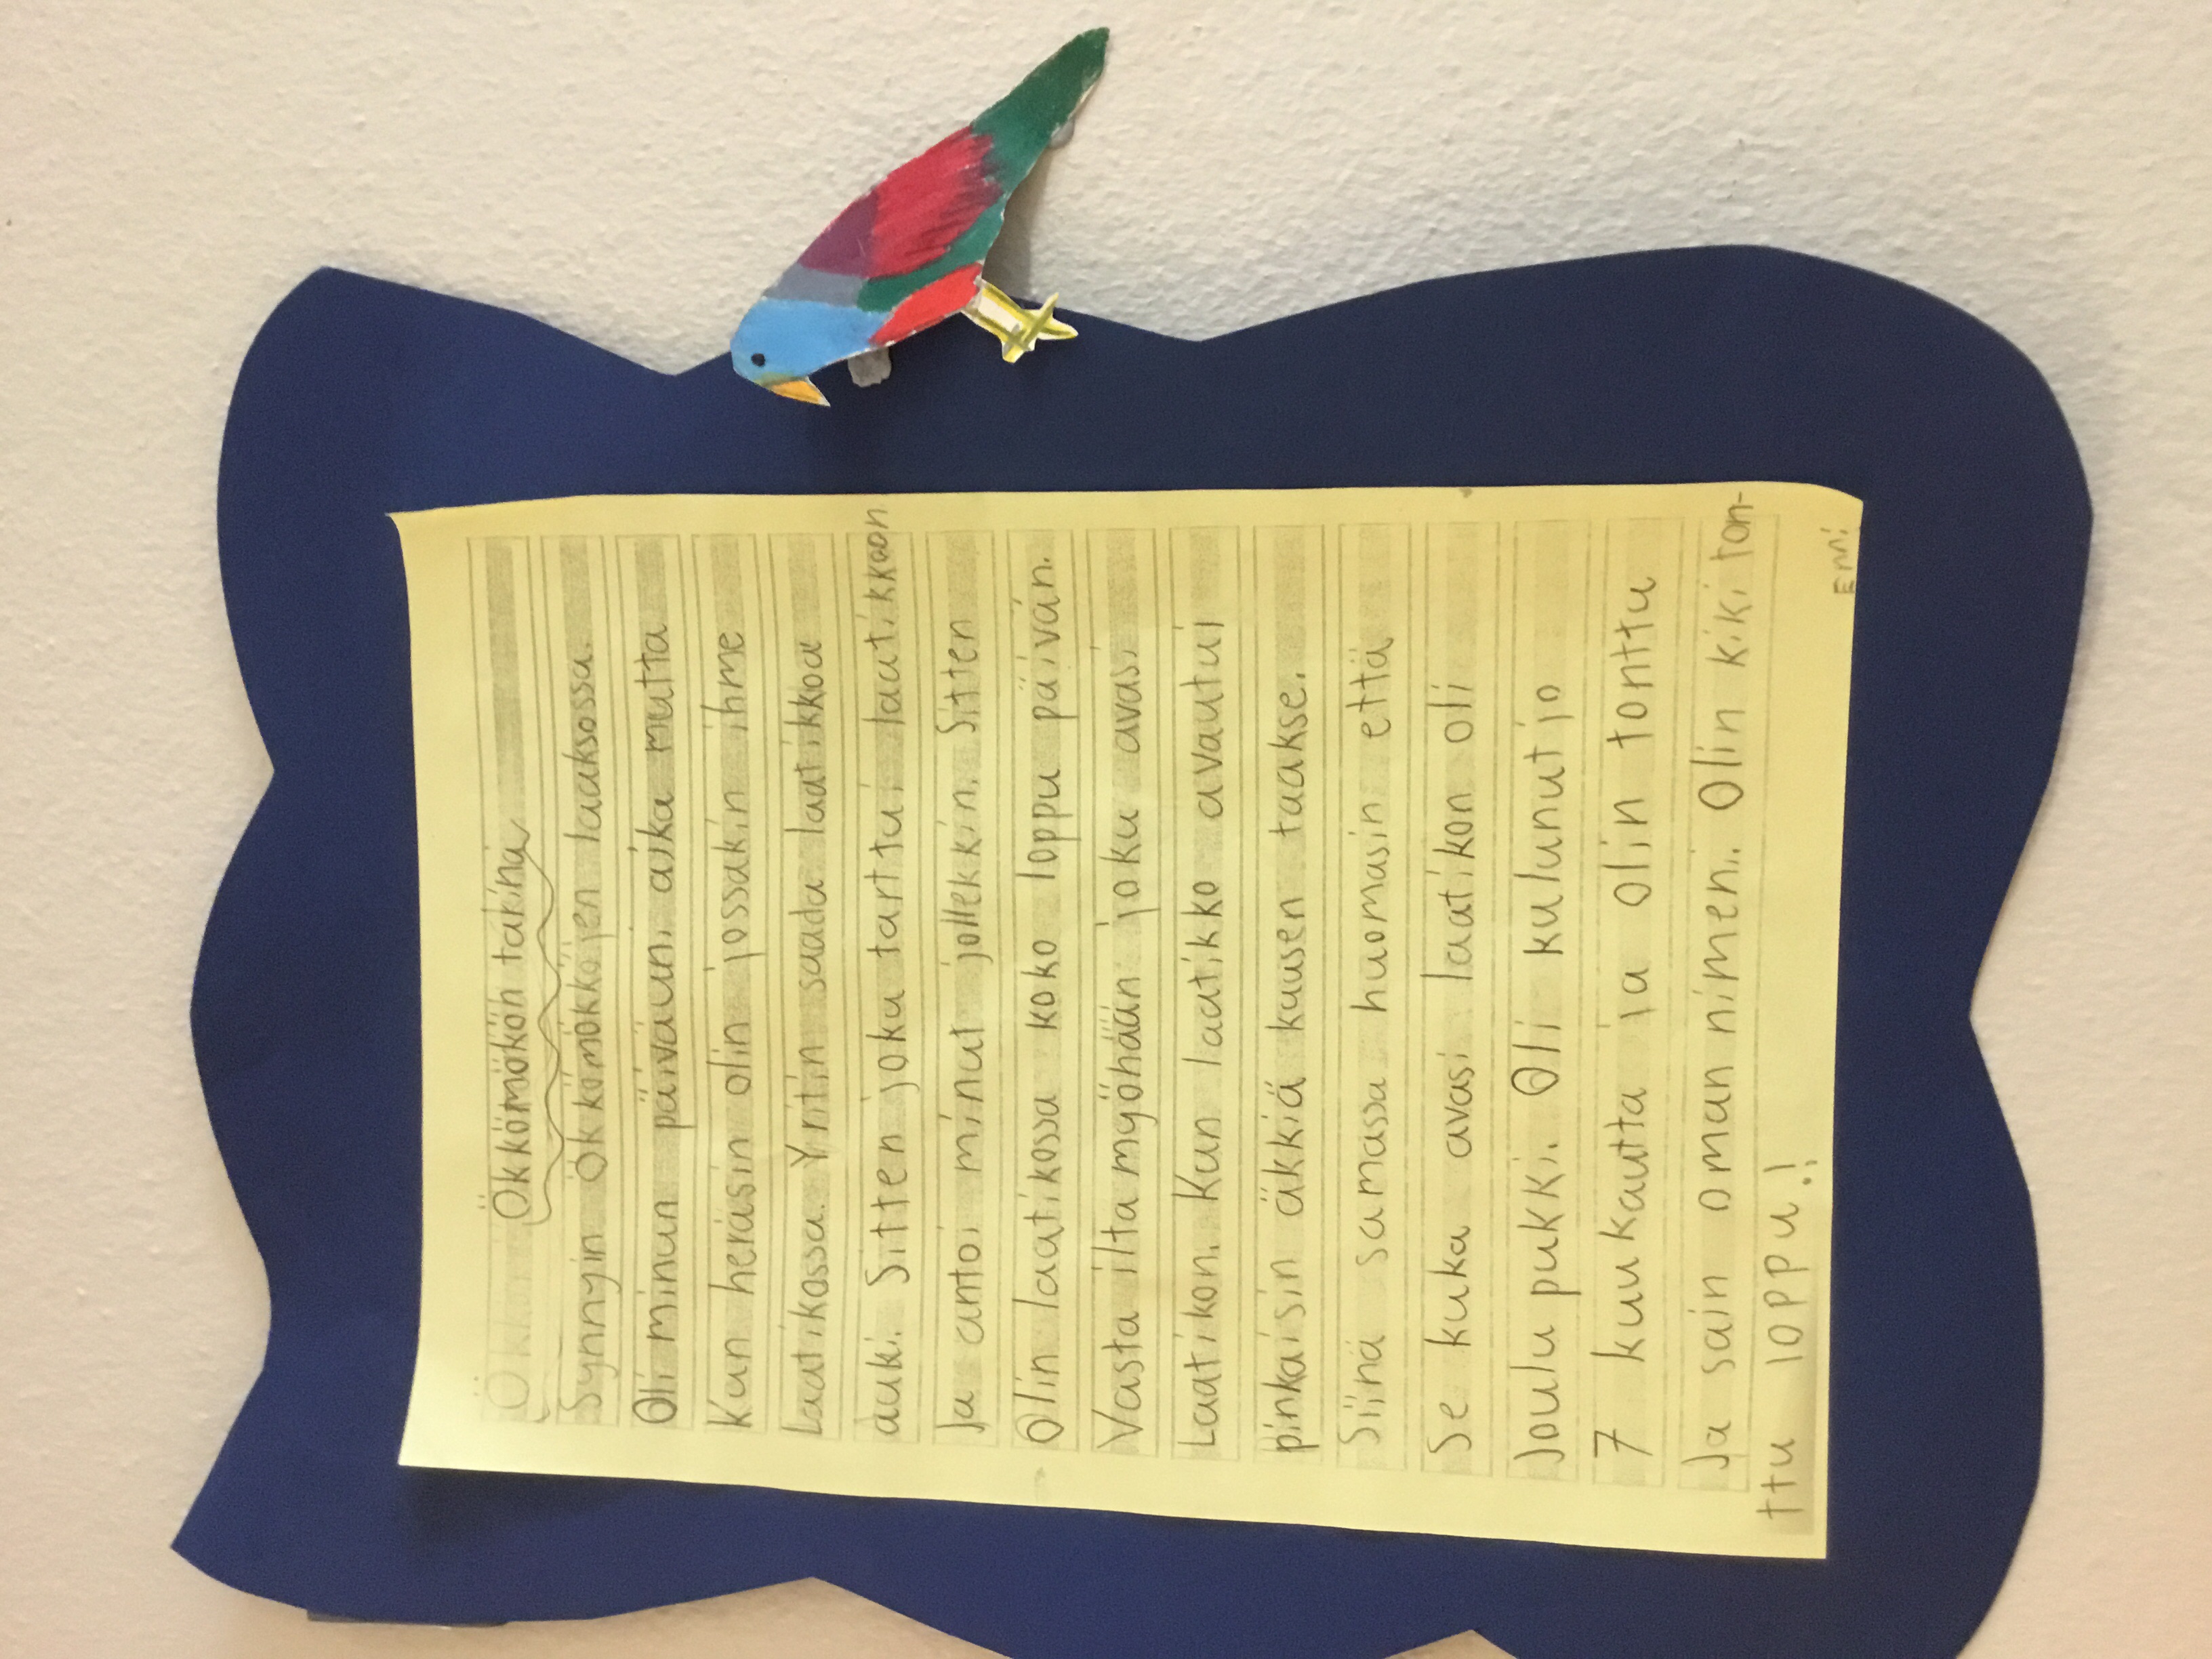 Ökkömökön tarina
Synnyin Ökkömökköjen laaksossa.
Oli minun päiväuni aika mutta
Kun heräsin olin jossakin ihme
Laatikossa. Yritin saada laatikkoa
auki. Sitten joku tarttui laatikkoon
Ja antoi minut jollekkin. Sitten
Olin laatikossa koko loppu päivän.
Vasta ilta myöhään joku avasi
Laatikon. Kun laatikko avautui
pinkaisin äkkiä kuusen taakse.
Siinä samassa huomasin että
Se kuka avasi laatikon oli
Joulu pukki. Oli kulunut jo
7 kuukautta ja olin tonttu
Ja sain oman nimeni. Olin kiki ton-
ttu loppu!!
Emmi